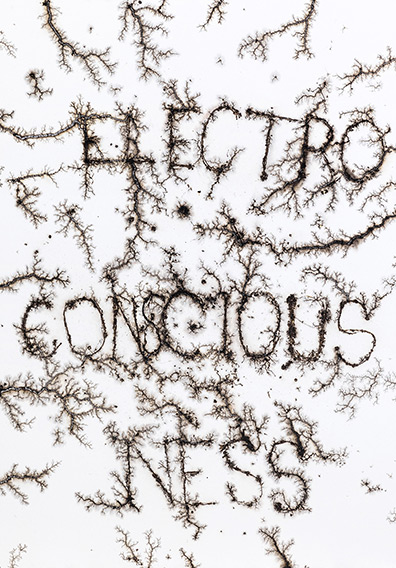 ELECTRO
CONSCIOUS
NESS